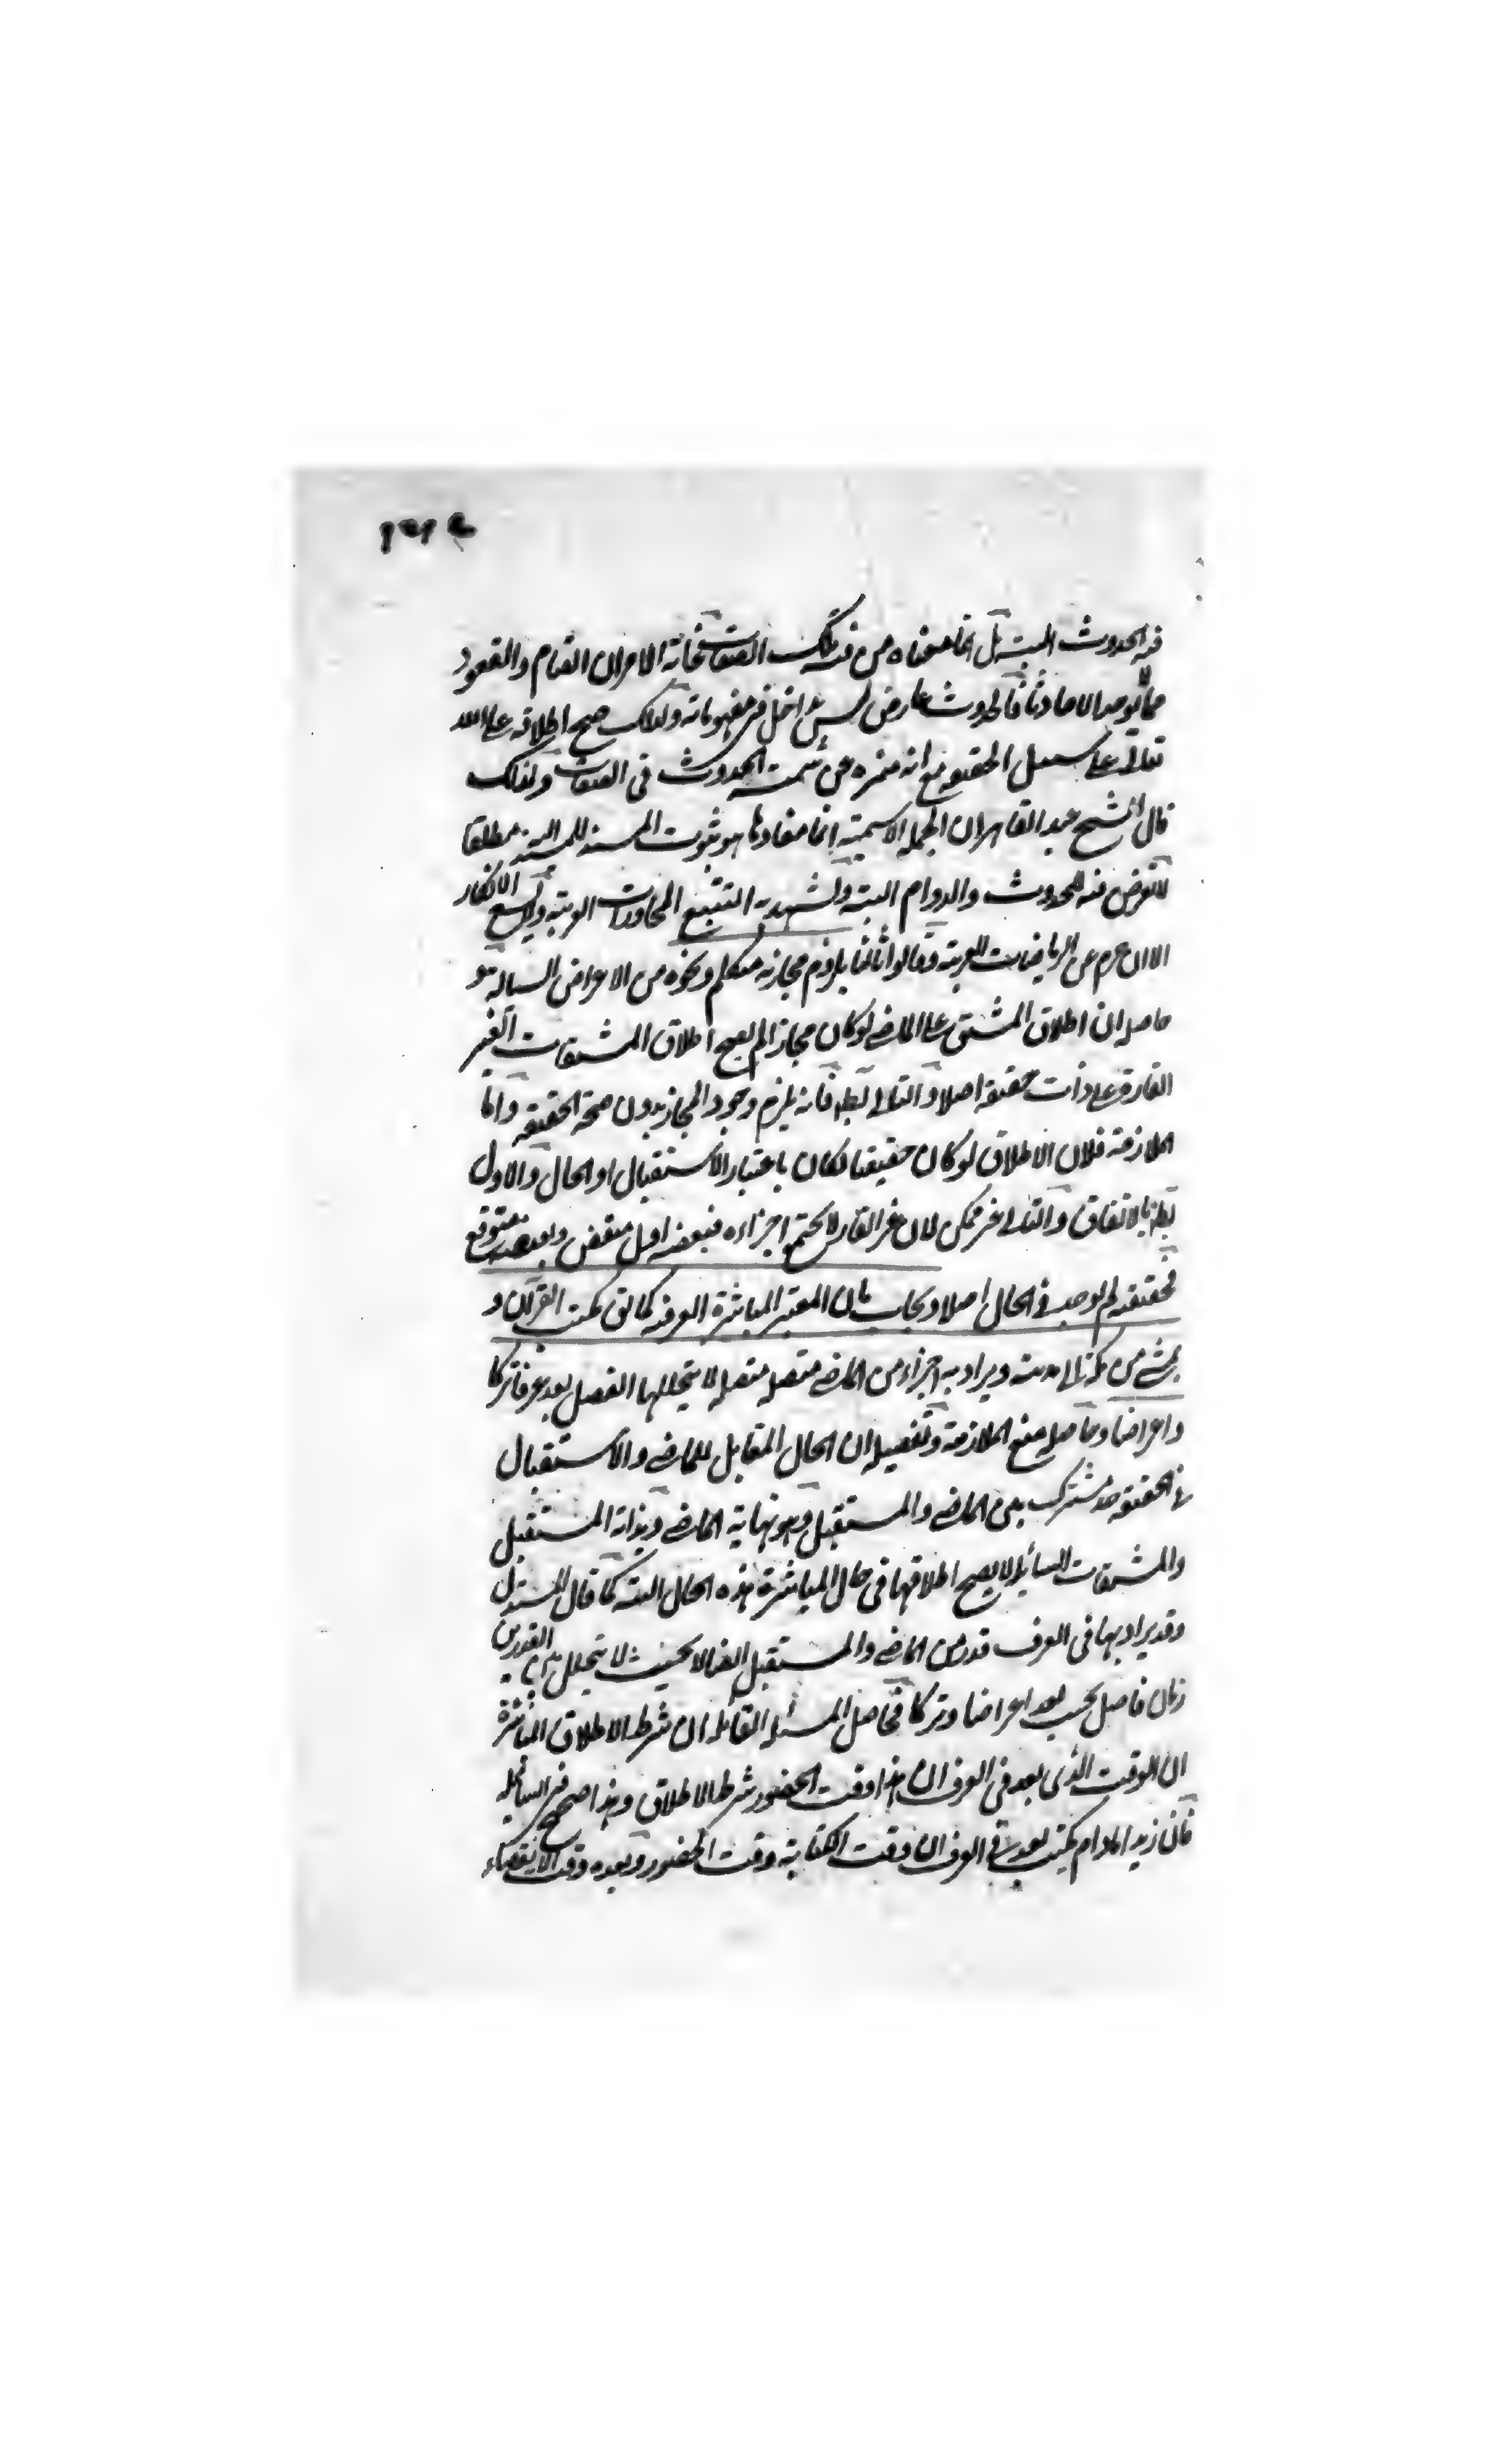 فيه الحدوث البتة بل انما معناه من فيه تلك الصفات غاية الامر ان القيام والقعود
مما لا يوجد الا حادثا فالحدوث عارض ليس بداخل في مفهوماته ولذلك صح اطلاقه على الله
تعالى على سبيل الحقيقة مع انه منزه عن سمة الحدوث في الصفات ولذلك
قال الشيخ عبد القاهر ان الجملة الاسمية انما مفادها هو ثبوت المسند للمسند اليه مطلقا
لا تعرض فيه للحدوث والدوام البتة ويشهد به التتبع المحاورات العربية ولا يسع الانكار
الا ان حرم عن الرياضات العربية وقالوا ثالثا يلزم مجازية متكلم ونحوه من الاعراض السيالة و
حاصله ان اطلاق المشتق على الماضي لو كان مجازا لم يصح اطلاق المشتقات الغير
القارة على ذات حقيقة اصلا والتالي بط فانه يلزم وجود المجاز بدون صحة الحقيقة واما
الملازمة فلان الاطلاق لو كان حقيقيا لكان باعتبار الاستقبال او الحال والاول
بط بالاتفاق والثاني غير ممكن لان غير القار لا يجتمع اجزاءه فبعضه اول منقض وبعضه متوقع
فحقيقته لم توجد في الحال اصلا ويجاب بان المعتبر المباشرة العرفية كما يق يكتب القرآن و
يمشي من مكة الى مدينة ويراد به اجزاء من الماضي متصلة متصلة لا يتخللها الفصل يعد عرفا تركا
واعراضا وحاصله منع الملازمة وتفصيله ان الحال المقابل للماضي والاستقبال
في الحقيقة حد مشترك بين الماضي والمستقبل وهو نهاية الماضي وبداية المستقبل
والمشتقات السيالة لا يصح اطلاقها في حال المباشرة هذه الحال البتة كما قال المستدل
وقد يراد بها في العرف قدر من الماضي والمستقبل ايضا لا بحيث لا يتخلل بين القدرين
زمان فاصل بحيث يعد اعراضا وتركا فحاصل المسئلة القائلة ان شرط الاطلاق المباشرة
ان الوقت الذي يعد في العرف ان هذا وقت الحضور شرط الاطلاق وهذا صحيح في السيالة
فان زيدا ما دام يكتب يعد في العرف ان وقت الكتابة وقت الحضور وبعده وقت الانقضاء